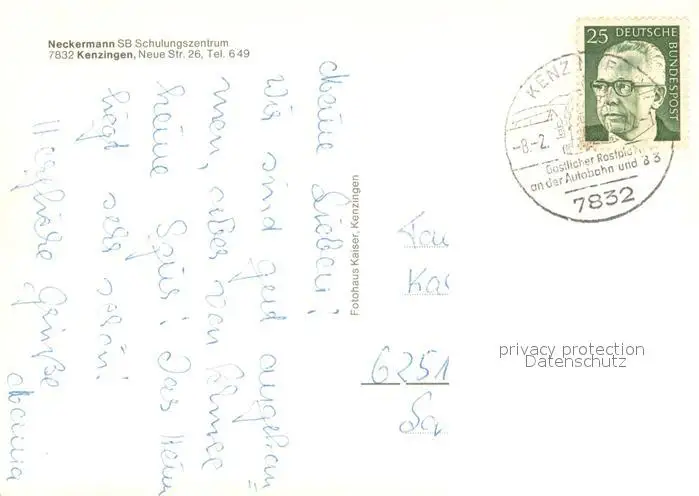 Neckermann SB Schulungszentrum
7832 Kenzingen, Neue Str. 26, Tel. 6 49
Meine Lieben!
Wir sind gut angekom
men, aber von Schnee
keine Spur! Das Heim
liegt sehr schön!
Herzliche Grüße
Mama
Fotohaus Kaiser, Kenzingen
25 DEUTSCHE
BUNDESPOST
-8.-2.
Gastlicher Rastplatz
an der Autobahn und B 3
7832
6251
privacy protection
Datenschutz